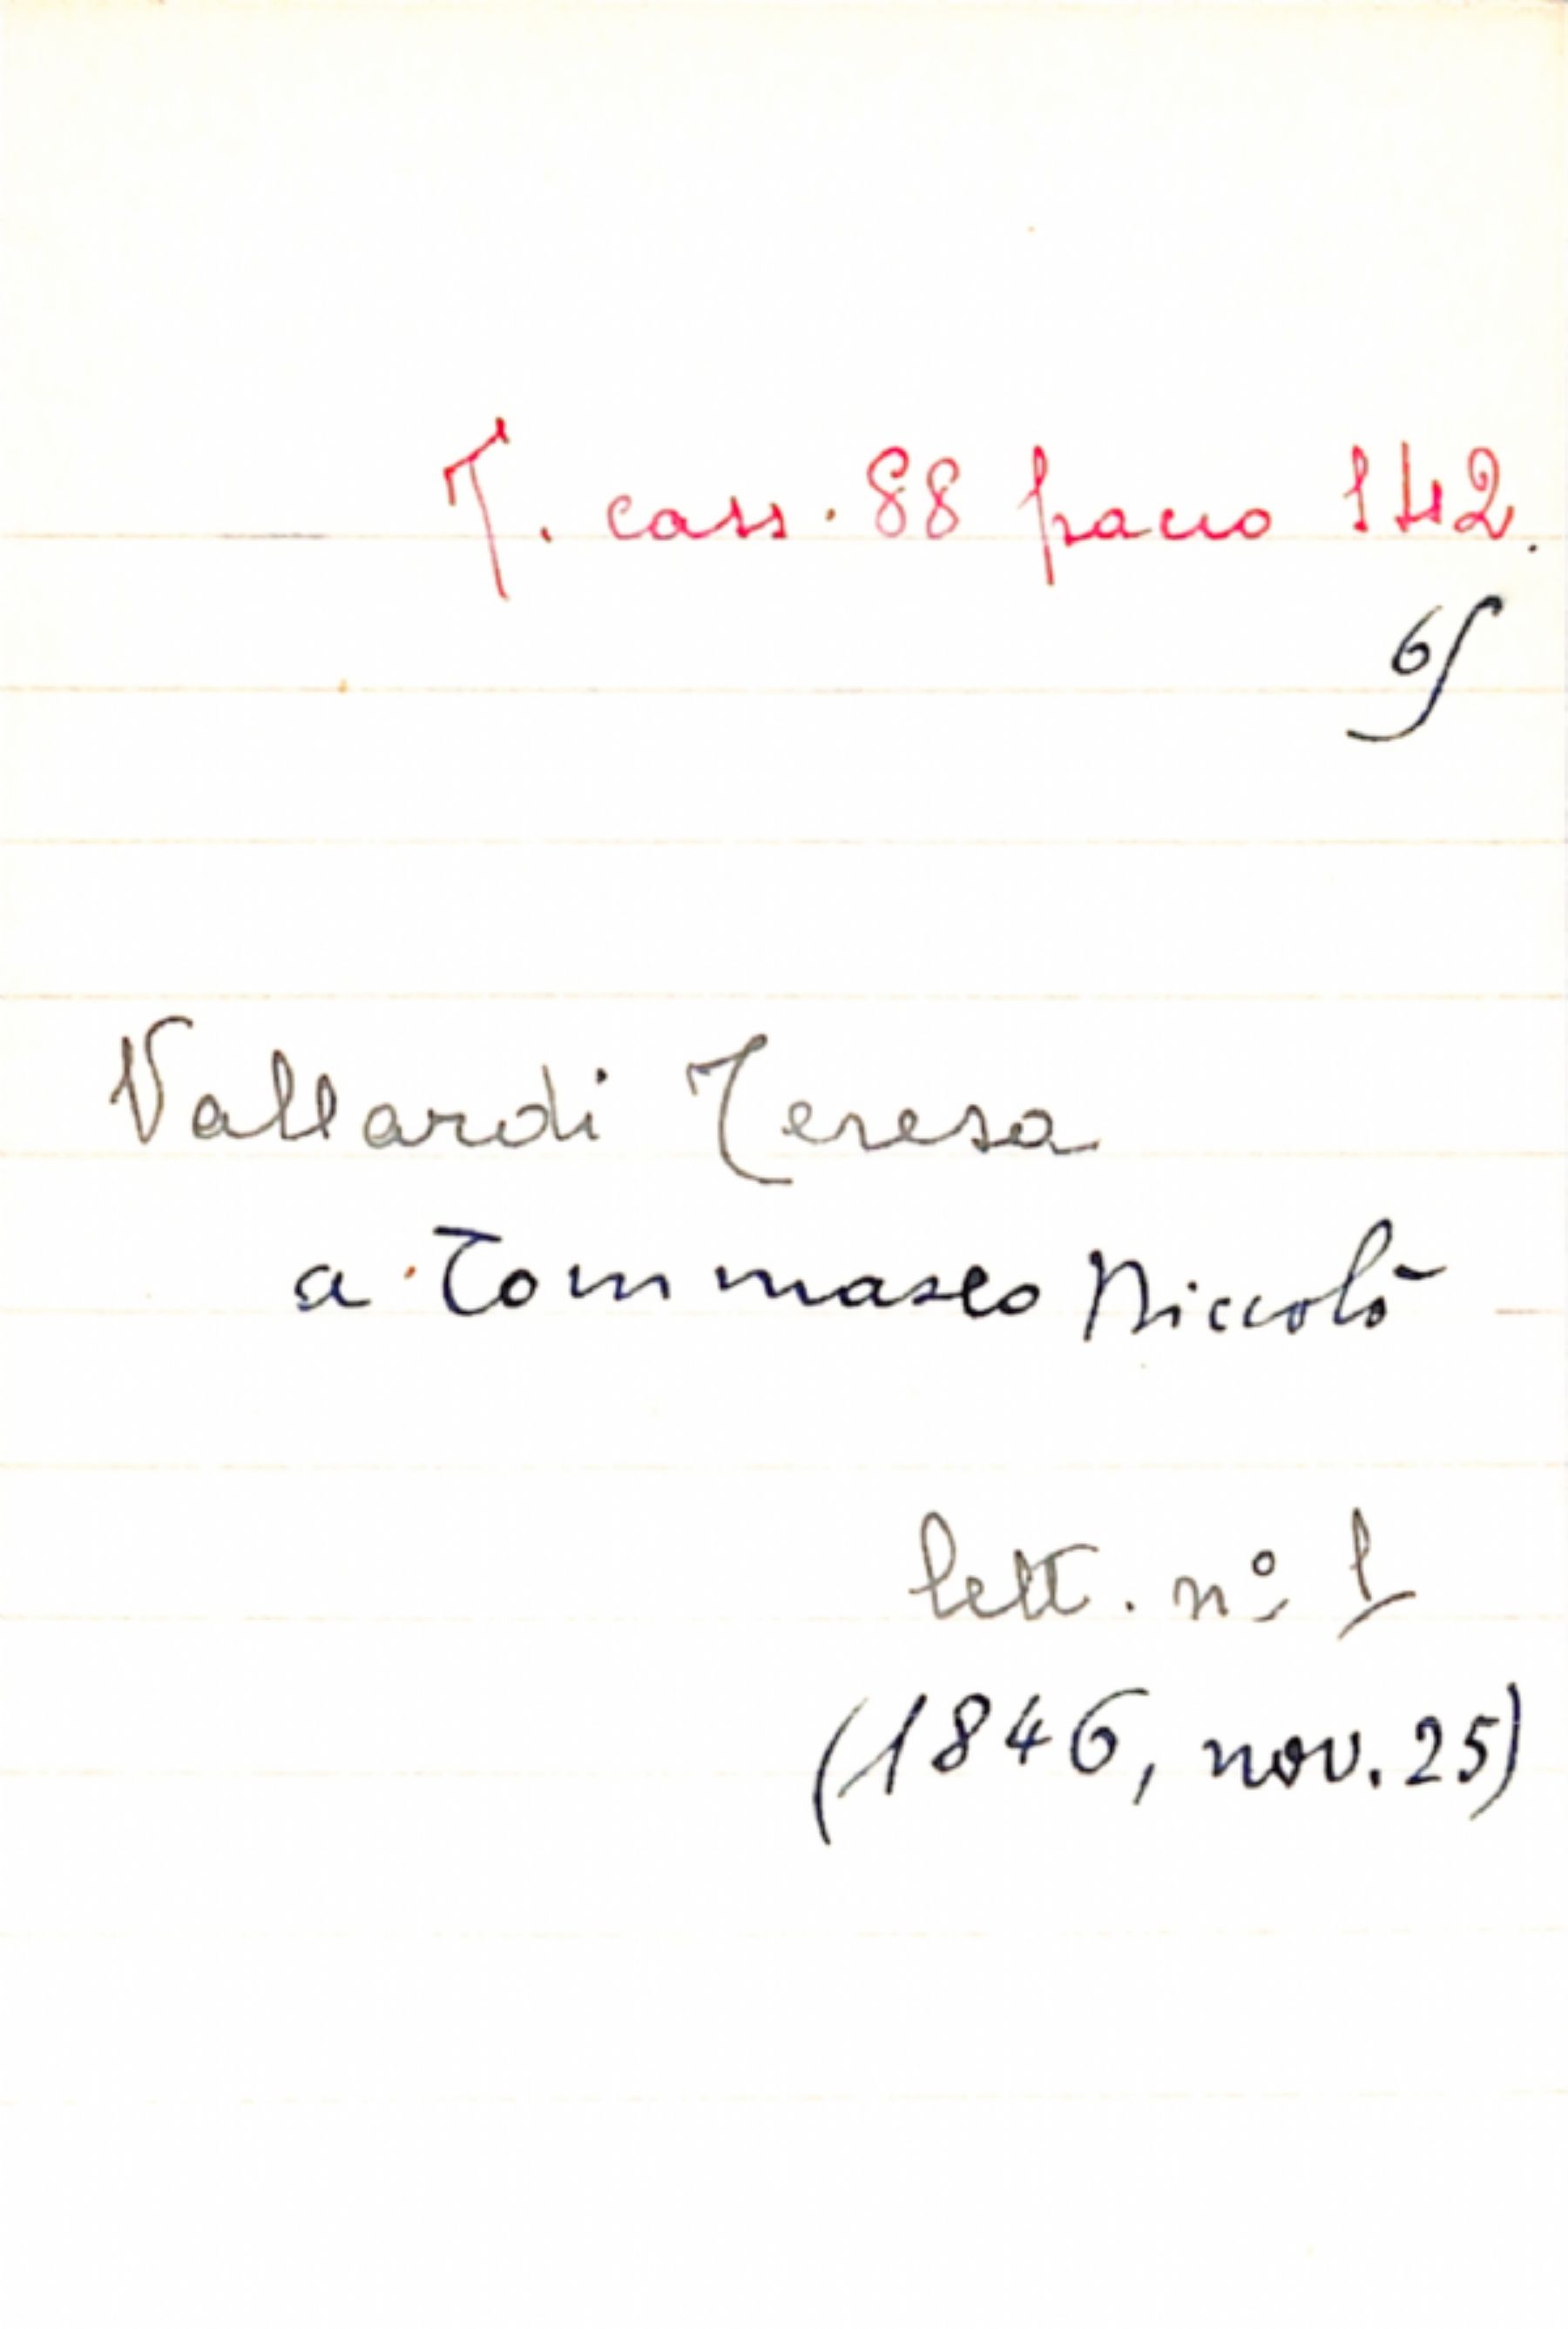 T. cass. 88 pacco 142.
65
Vallardi Teresa
a Tommaseo Niccolò
lett. nº 1
(1846, nov. 25)